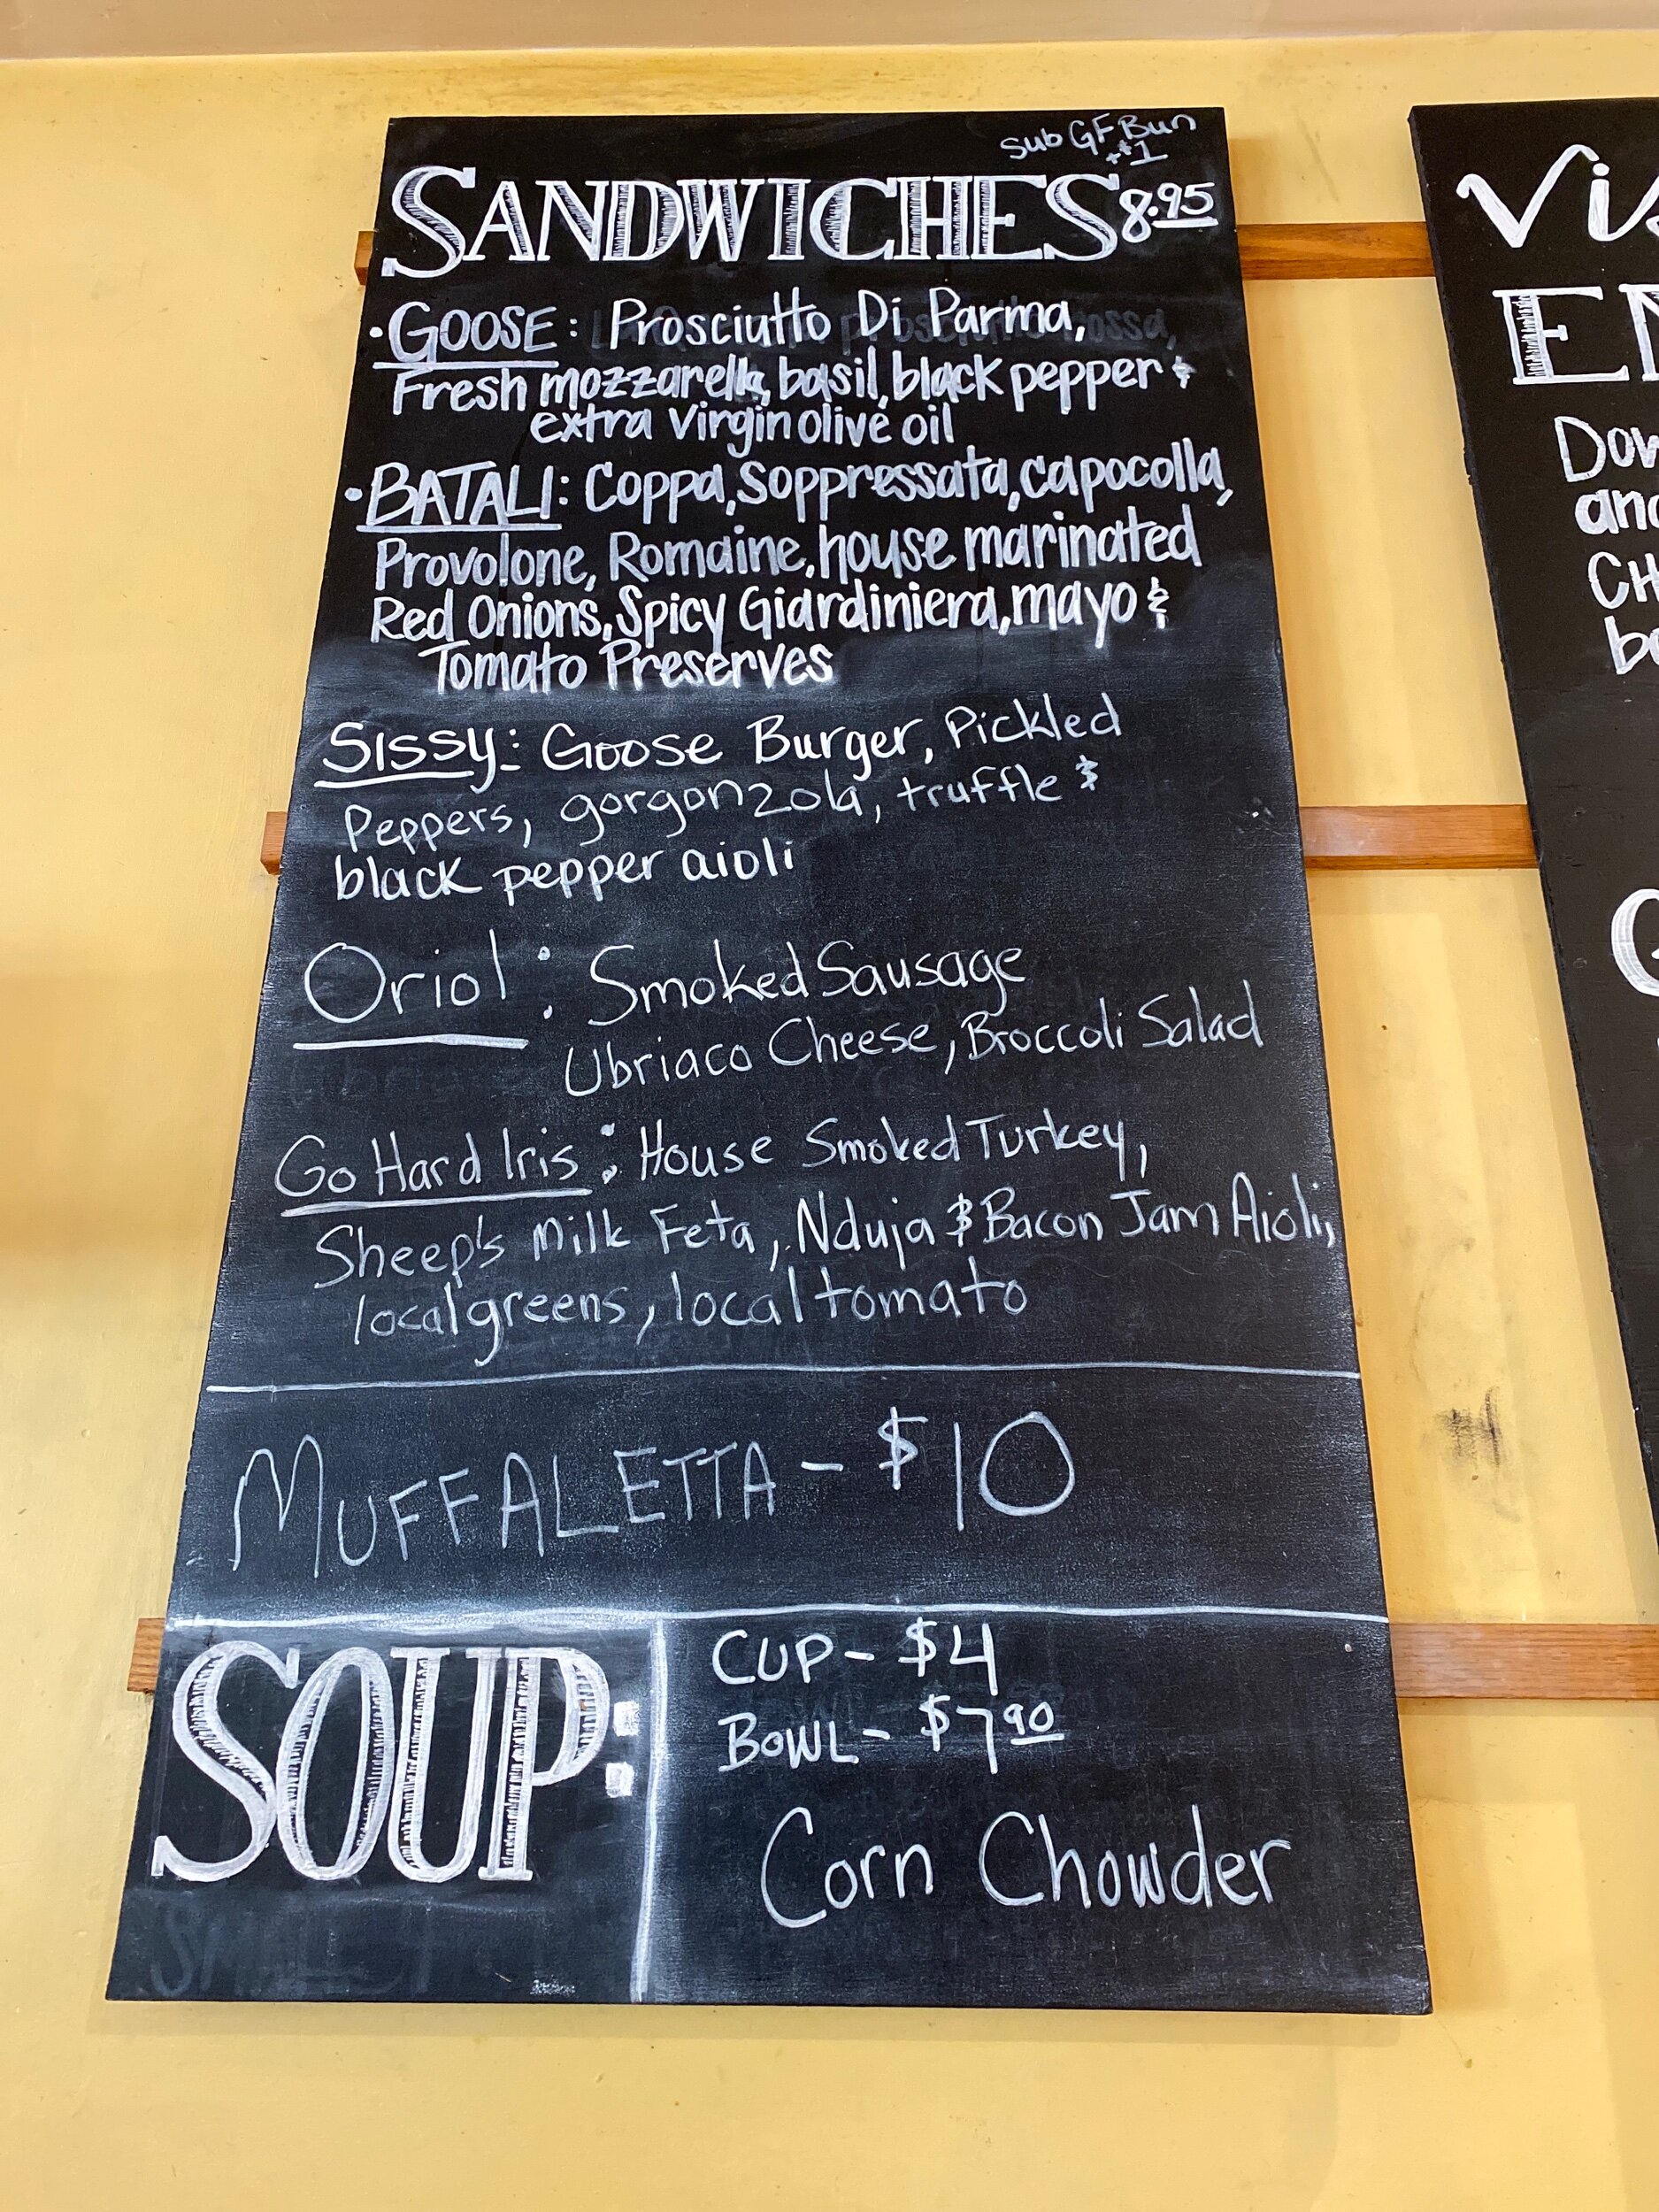 Sub GF Bun
+$1
SANDWICHES 8.95
• GOOSE: Prosciutto Di Parma,
Fresh mozzarella, basil, black pepper &
extra virgin olive oil
• BATALI: Coppa, Soppressata, capocolla,
Provolone, Romaine, house marinated
Red Onions, Spicy Giardiniera, mayo &
Tomato Preserves
Sissy: Goose Burger, Pickled
Peppers, gorgonzola, truffle &
black pepper aioli
Oriol: Smoked Sausage
Ubriaco Cheese, Broccoli Salad
Go Hard Iris: House Smoked Turkey,
Sheep's Milk Feta, Nduja & Bacon Jam Aioli,
local greens, local tomato
MUFFALETTA - $10
SOUP:
CUP - $4
BOWL - $7.90
Corn Chowder